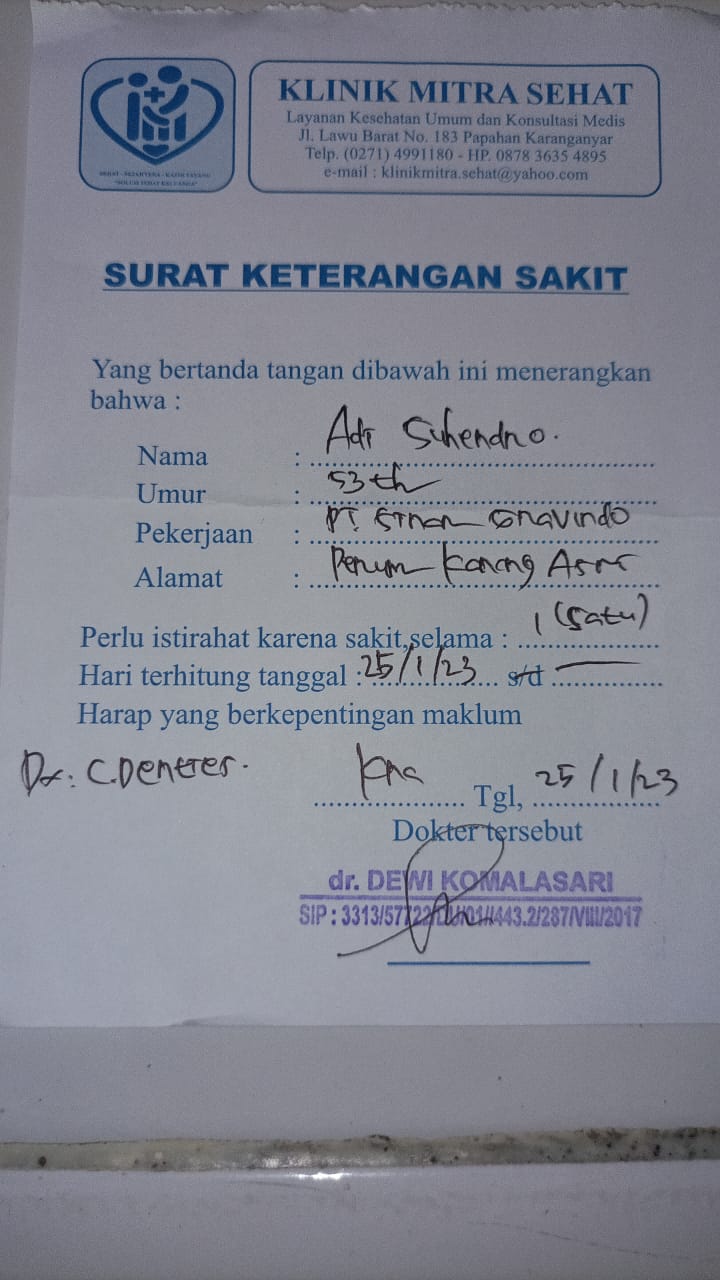 KLINIK MITRA SEHAT
Layanan Kesehatan Umum dan Konsultasi Medis
Jl. Lawu Barat No. 183 Papahan Karanganyar
Telp. (0271) 4991180 - HP. 0878 3635 4895
e-mail : klinikmitra.sehat@yahoo.com
SURAT KETERANGAN SAKIT
Yang bertanda tangan dibawah ini menerangkan
bahwa :
Nama : Adi Suhendro.
Umur : 53 th
Pekerjaan : PT.
Alamat : Perum Karang
Perlu istirahat karena sakit,selama : 1 (satu)
Hari terhitung tanggal : 25/1/23 s/d —
Harap yang berkepentingan maklum
Kra Tgl, 25/1/23
Dokter tersebut
dr. DEWI KOMALASARI